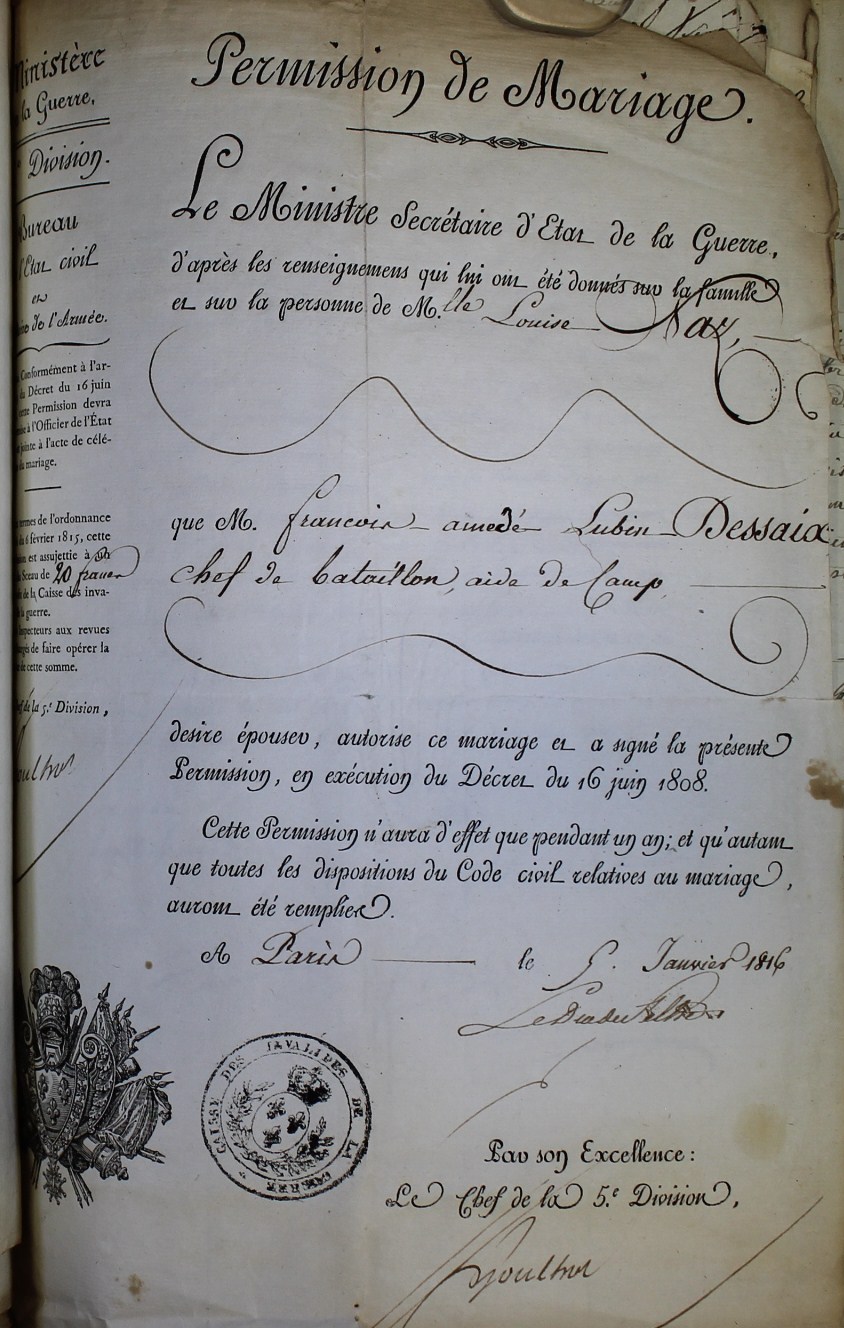 Ministère
la Guerre.
Division.
Bureau
l'Etat civil
et
de l'Armée.
Conformément à l'ar-
Décret du 16 juin
Permission devra
à l'Officier de l'État
jointe à l'acte de célé-
mariage.
termes de l'ordonnance
6 février 1815, cette
est assujettie à un
Sceau de 20 francs
de la Caisse des inva-
guerre.
Inspecteurs aux revues
chargés de faire opérer la
de cette somme.
de la 5.e Division,
Permission de Mariage.
Le Ministre Secrétaire d'Etat de la Guerre,
d'après les renseignemens qui lui ont été donnés sur la famille
et sur la personne de M.lle Louise Naz,
que M. francois amedé Lubin Dessaix
chef de bataillon, aide de Camp
desire épouser, autorise ce mariage et a signé la présente
Permission, en exécution du Décret du 16 juin 1808.
Cette Permission n'aura d'effet que pendant un an; et qu'autant
que toutes les dispositions du Code civil relatives au mariage,
auront été remplies.
A Paris le 5. Janvier 1816
Le Duc de Feltre
CAISSE DES INVALIDES DE LA GUERRE
Par son Excellence:
Le Chef de la 5.e Division,